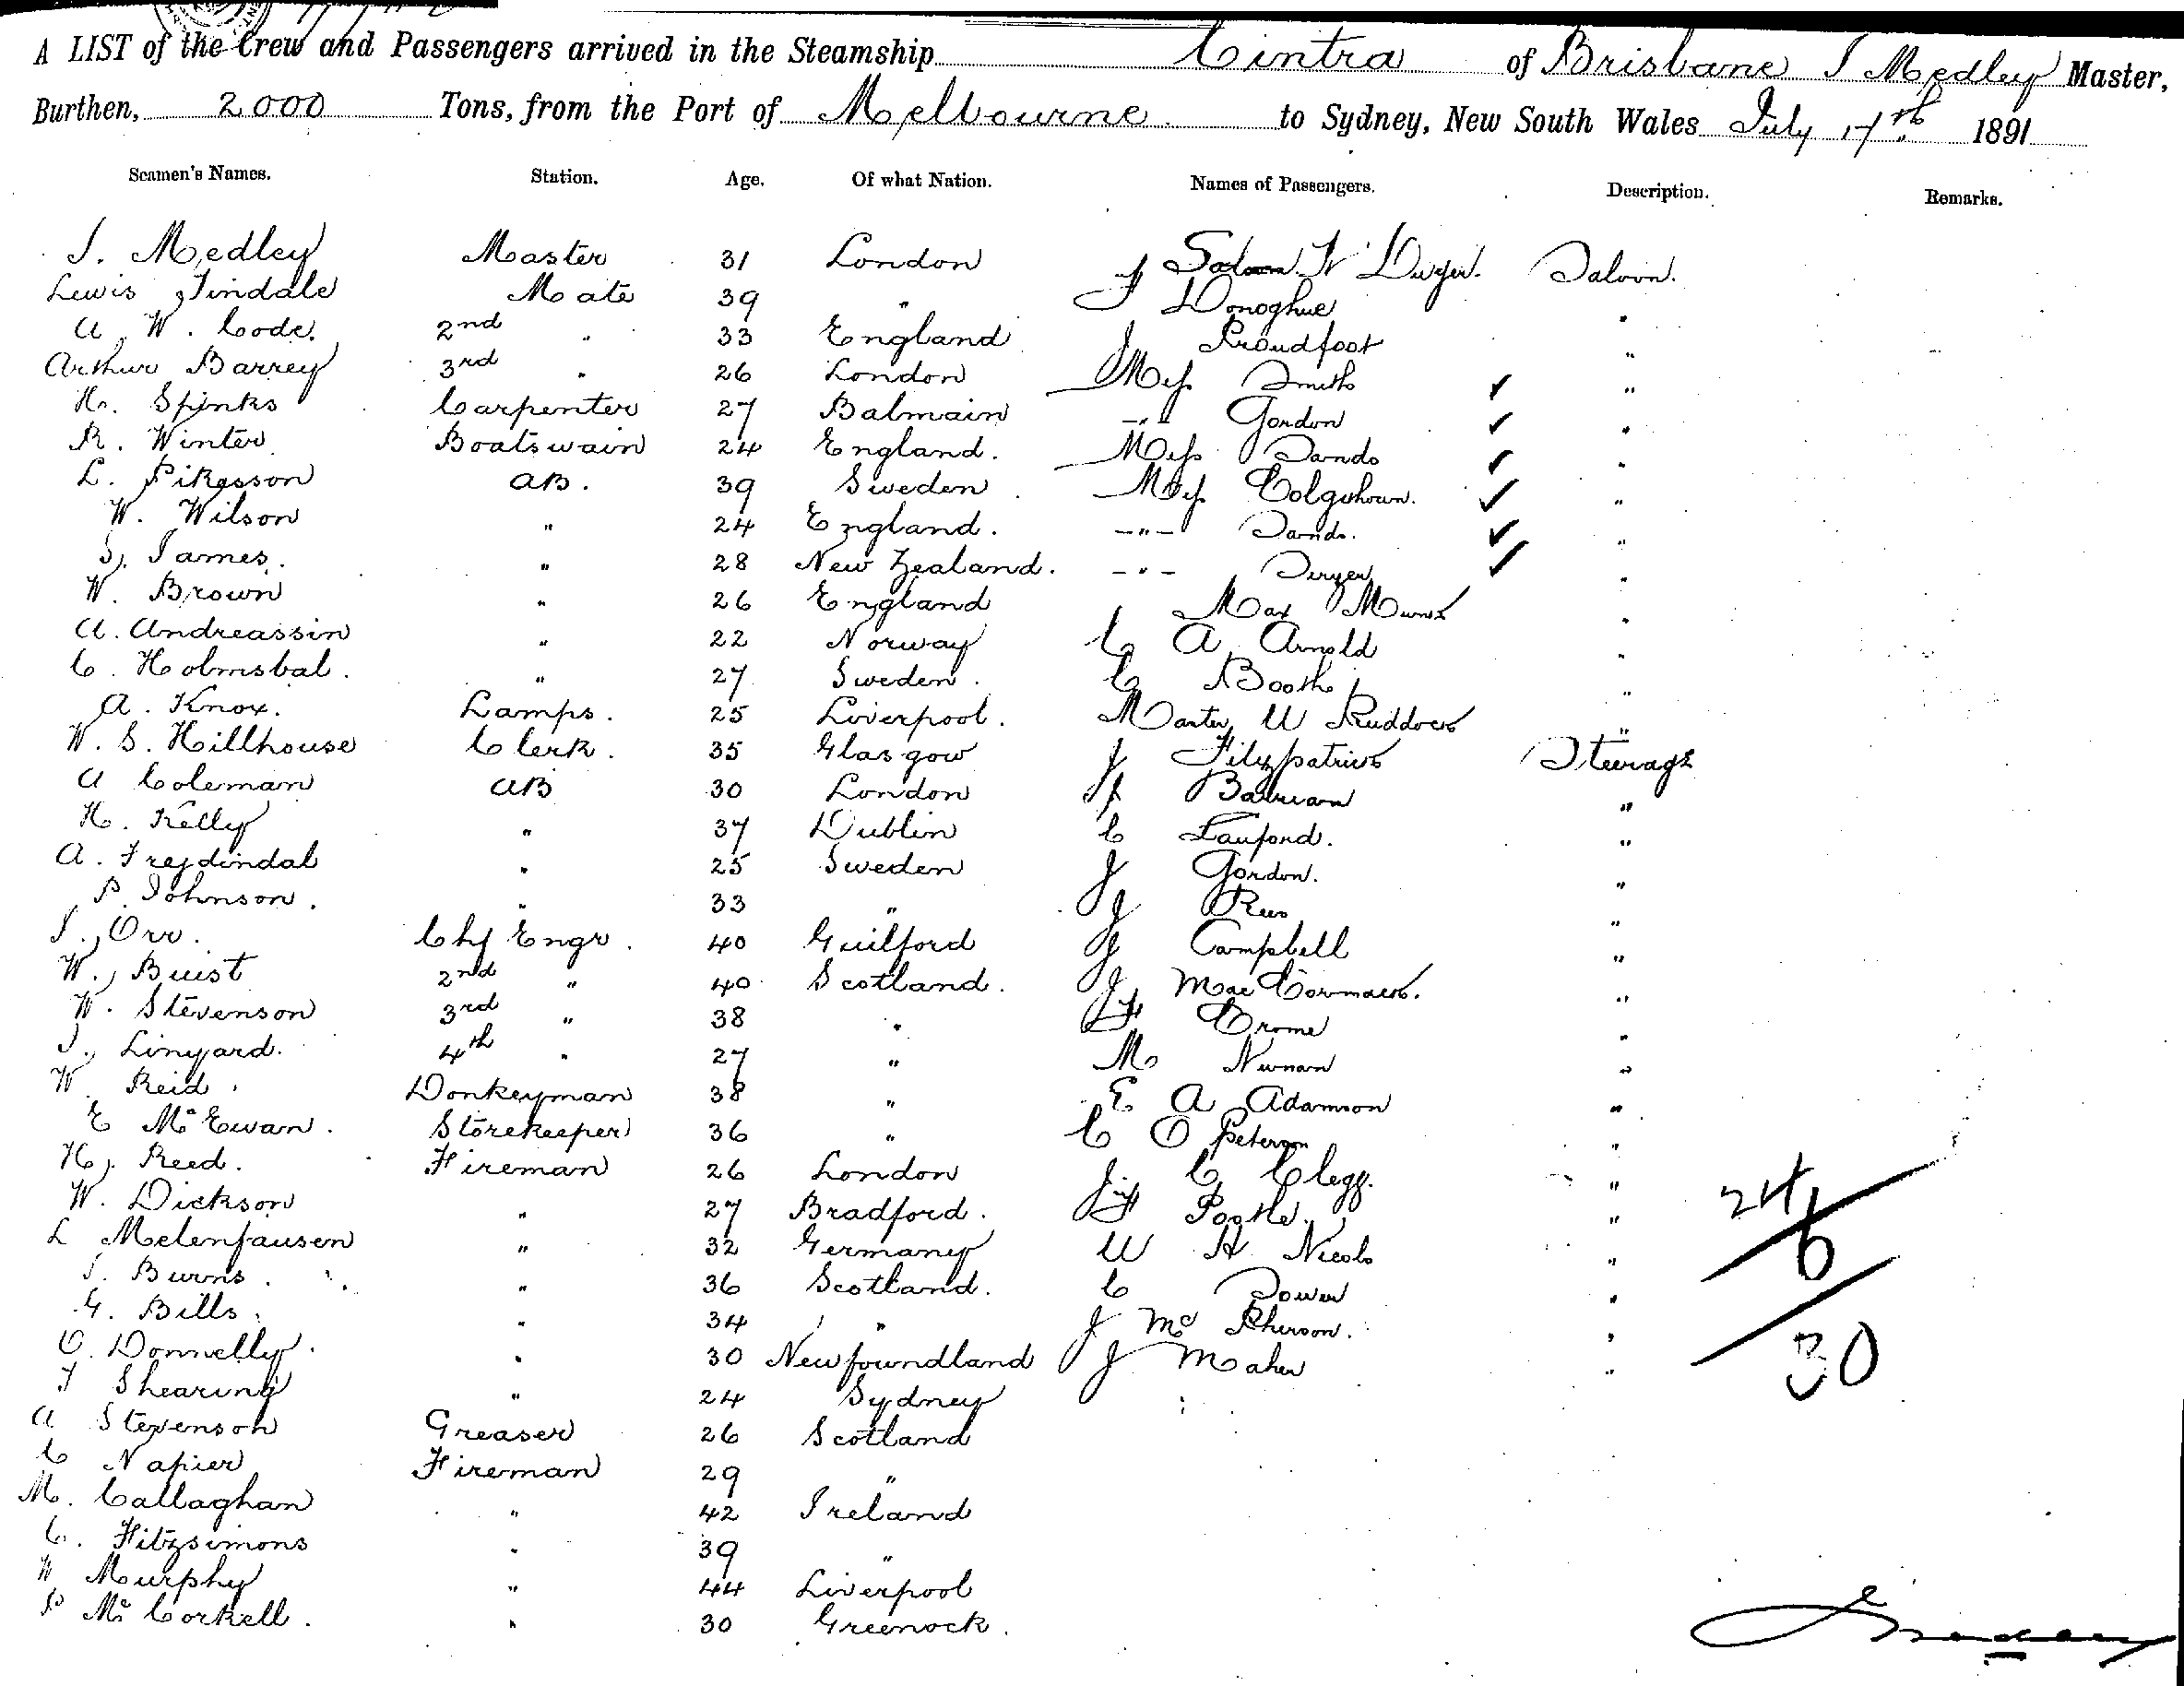 A LIST of the Crew and Passengers arrived in the Steamship Cintra of Brisbane J Medley Master,
Burthen, 2000 Tons, from the Port of Melbourne to Sydney, New South Wales July 17th 1891
Seamen's Names. Station. Age. Of what Nation. Names of Passengers. Description. Remarks.
J. Medley Master 31 London W Dwyer. Saloon.
Lewis Tindale Mate 39 " J Donoghue "
A. W. Code. 2nd " 33 England J Proudfoot "
Arthur Barrey 3rd " 26 London Miss Smith ✓ "
H. Spinks Carpenter 27 Balmain -"- Gordon ✓ "
R. Winter Boatswain 24 England. Miss Sands ✓ "
L. Pikesson AB. 39 Sweden Mrs Colquhoun. ✓ "
W. Wilson " 24 England. -"- Sands. ✓ "
S. James. " 28 New Zealand. -"- Dwyer ✓ "
W. Brown " 26 England Max "
A. Andreassin " 22 Norway C A Arnold "
C. Holmsbal. " 27 Sweden. C Booth "
A. Knox. Lamps. 25 Liverpool. Master W Ruddock "
W. S. Hillhouse Clerk. 35 Glasgow J Fitzpatrick Steerage
A Coleman AB 30 London J "
H. Kelly " 37 Dublin C "
A. Freydindal " 25 Sweden J Gordon. "
P. Johnson. " 33 " J Rees "
J. Orr. Chf Engr. 40 Guilford J Campbell "
W. Buist 2nd " 40 Scotland. J MacCormack. "
W. Stevenson 3rd " 38 " F Crome "
J. Linyard. 4th " 27 " M Nunan "
W. Reid. Donkeyman 38 " E A Adamson "
E McEwan. Storekeeper 36 " C O Peterson "
H. Reed. Fireman 26 London J C Clegg. "
W. Dickson " 27 Bradford. F Pootle. "
L Melenfausen " 32 Germany W H Nicols "
J. Burns. " 36 Scotland. C "
G. Bills. " 34 " J McPherson. "
O. Donnelly. " 30 Newfoundland J Maher "
T Shearing " 24 Sydney
A Stevenson Greaser 26 Scotland
C Napier Fireman 29 "
M. Callaghan " 42 Ireland
C. Fitzsimons " 39 "
W Murphy " 44 Liverpool
P McCorkell. " 30 Greenock.
24
6
30